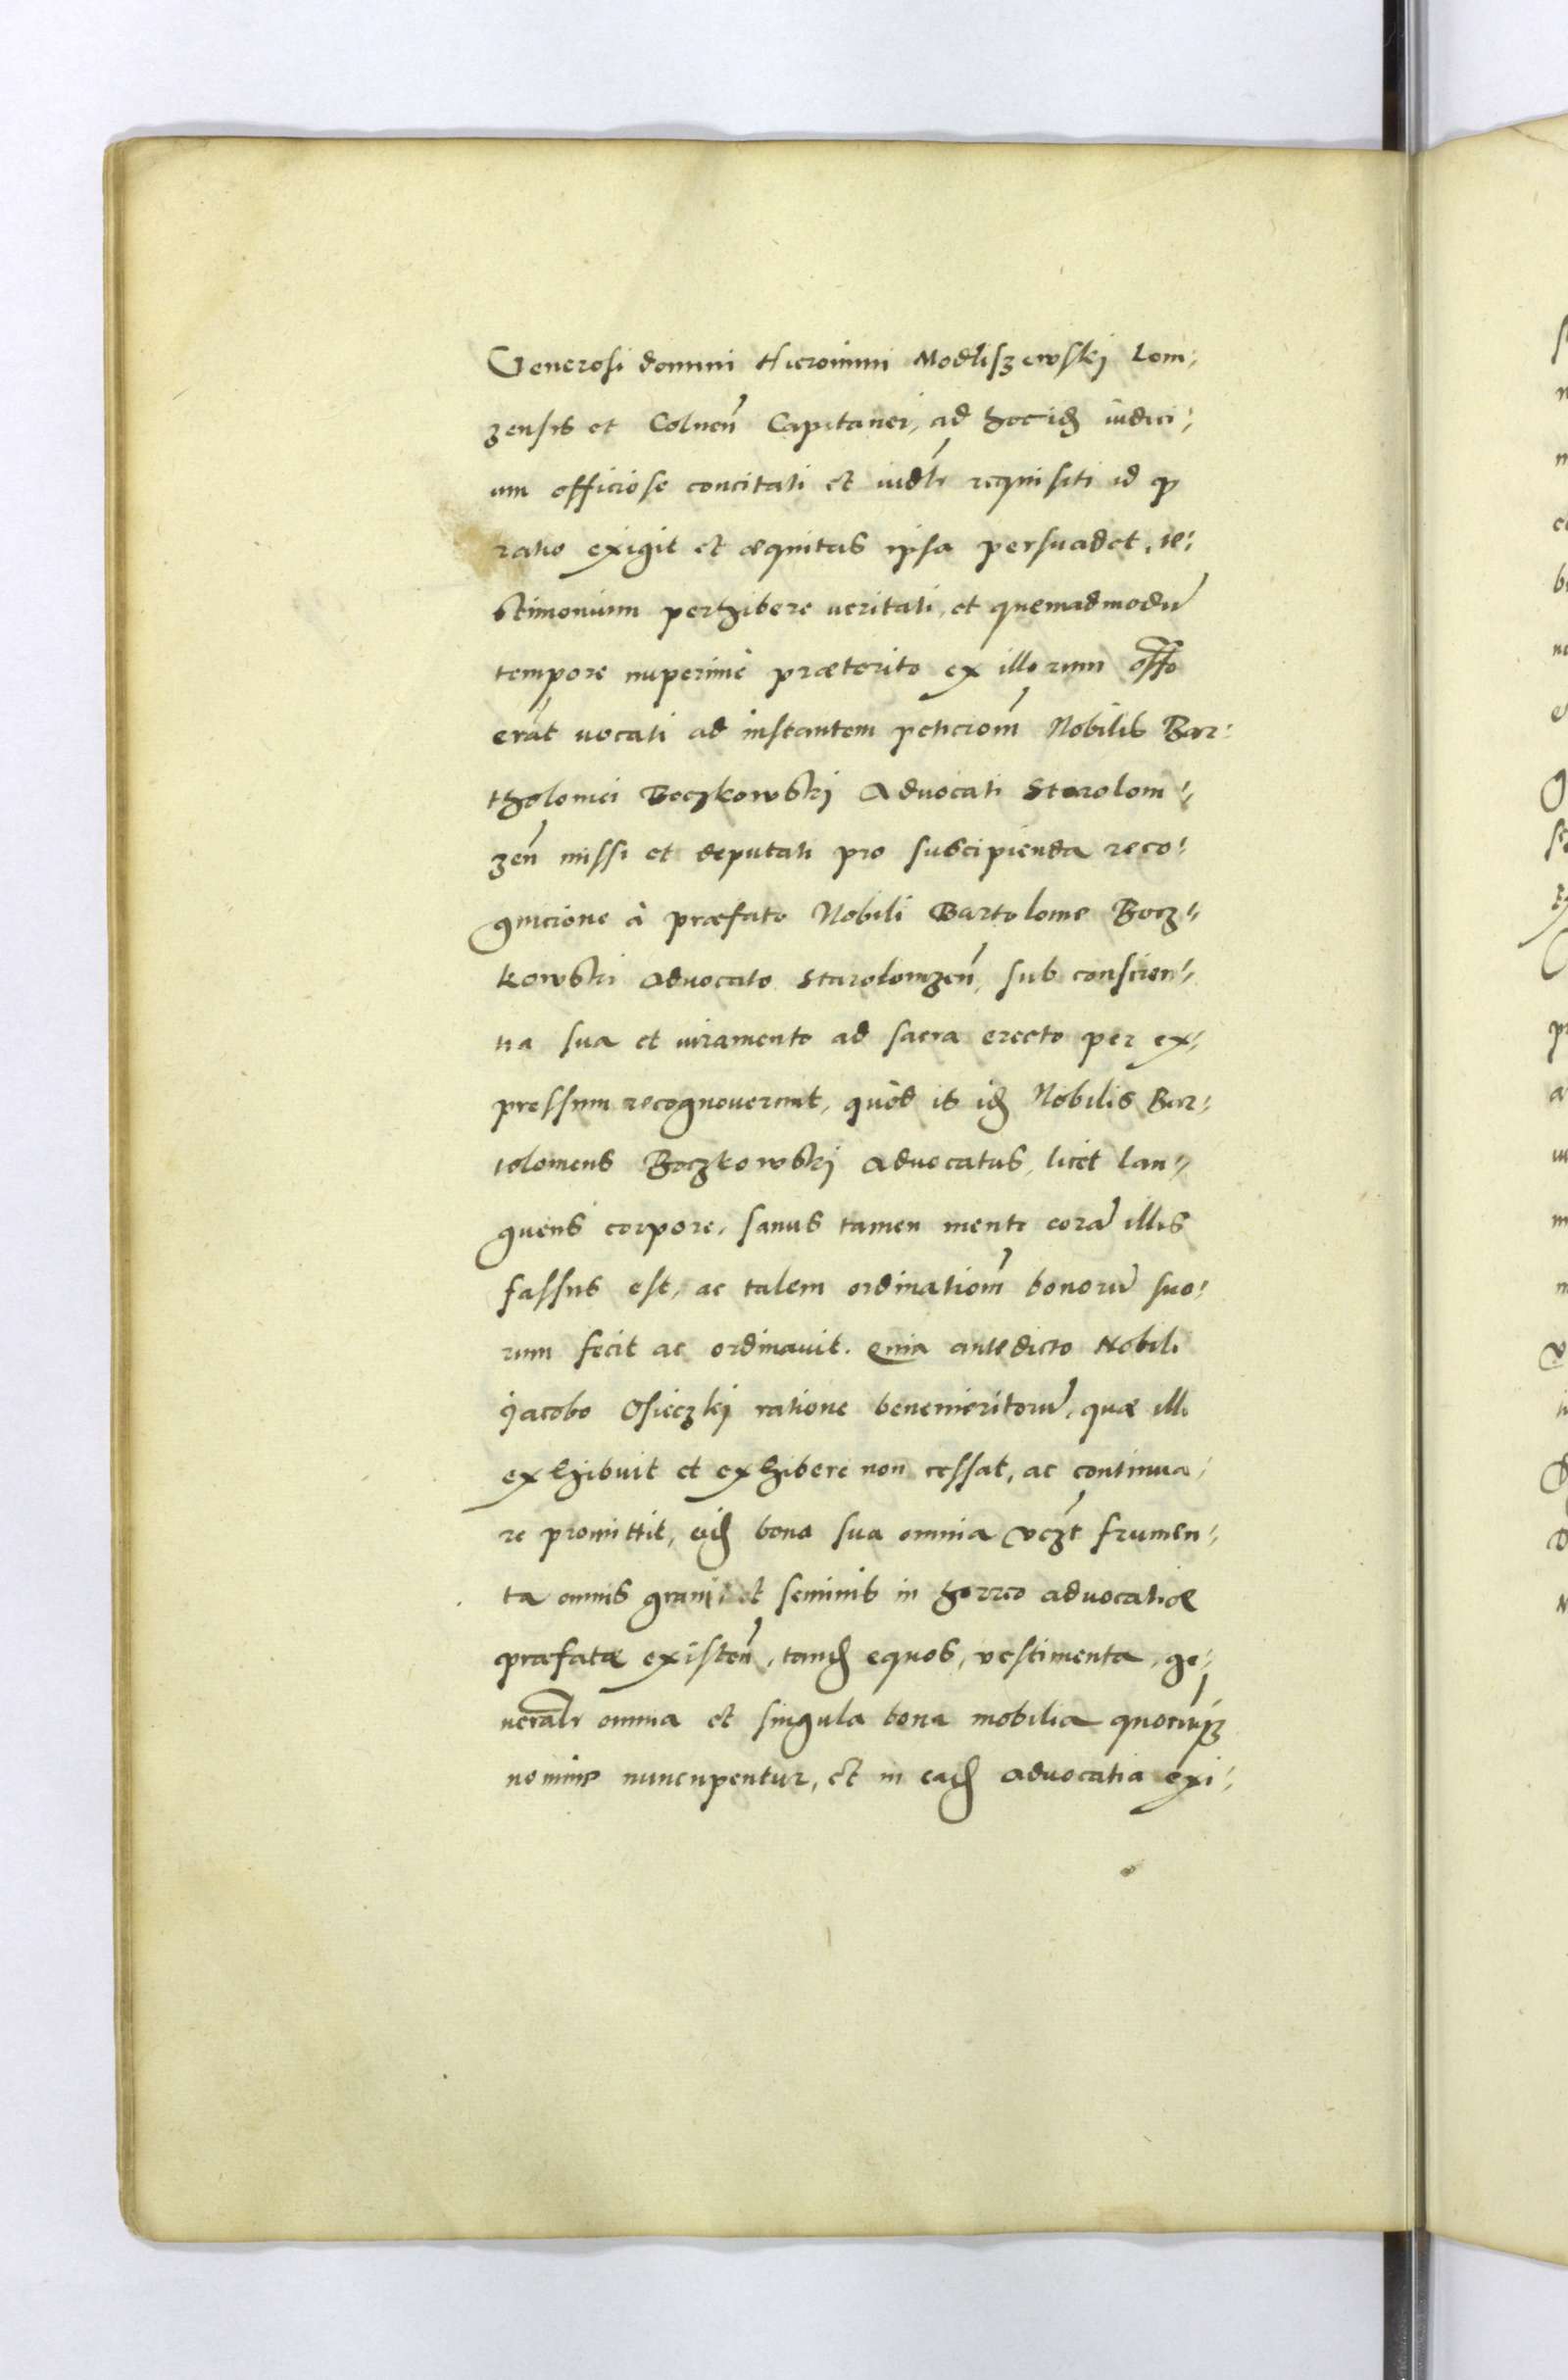 Generosi domini Hieronimi Modliszewskj Lom:
zensis et Colnen̄ Capitanei, ad hoc idē iudici:
um officiose concitati et iudlr requisiti id qd
ratio exigit et æquitas ipsa persuadet, te:
stimonium perhibere veritati, et quemadmodū
tempore nuperimè præterito ex illorum offo
erāt vocati ad instantem peticiom̄ Nobilis Bar:
tholomei Boczkowskj Advocati Starolom:
zen̄ missi et deputati pro suscipienda reco:
gnicione à præfato Nobili Bartolome Bocz:
kowski advocato Starolomzen̄, sub conscien:
tia sua et iuramento ad sacra erecto per ex:
pressum recognoverunt, quòd is idē Nobilis Bar:
tolomeus Boczkowskj advocatus, licet lan:
guens corpore, sanus tamen mente corā illis
fassus est, ac talem ordinatiom̄ bonorū suo:
rum fecit ac ordinavit. Quia antedicto Nobili
Jacobo Osieczkj ratione benemeritorū, quæ illi
exhibuit et exhibere non cessat, ac continua:
re promittit, eidē bona sua omnia vczt frumen:
ta omnis grani et seminis in horreo advocatiæ
præfatæ existen̄, tandē equos, vestimenta, ge:
neralr omnia et singula bona mobilia quocūqz
nomine nuncupentur, et in eadē advocatia exi: